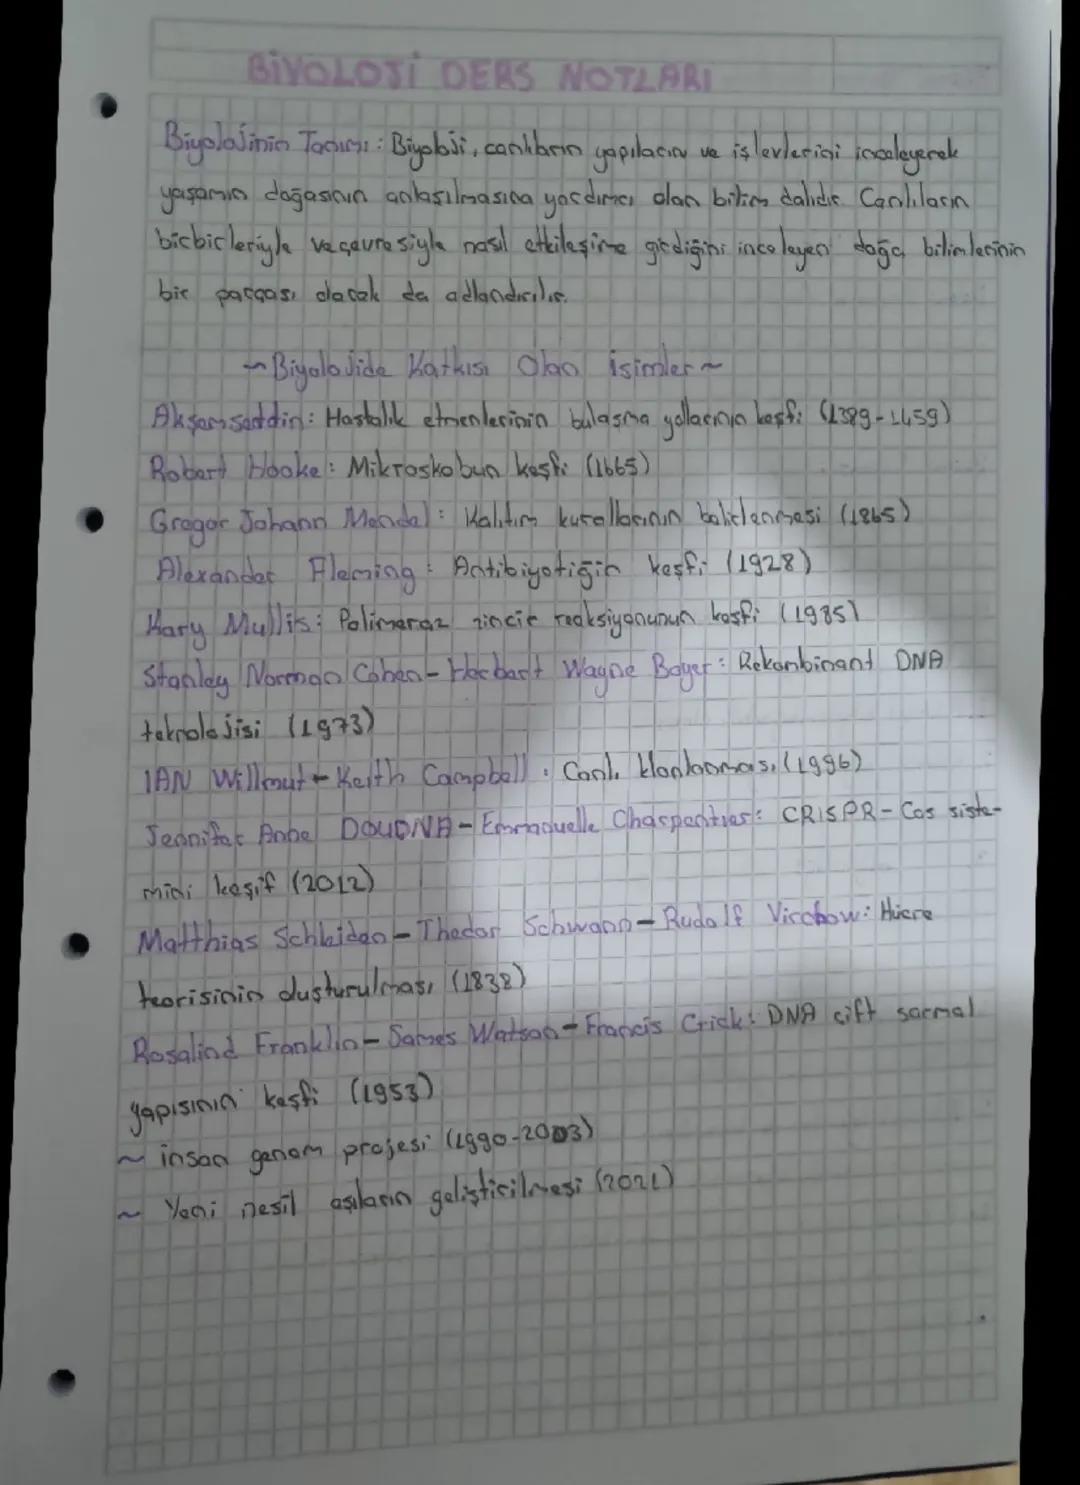 BİYOLOJİ DERS NOTLARI
Biyolojinin Tanımı: Biyoloji, canlıların yapılarını ve işlevlerini inceleyerek
yaşamın doğasının anlaşılmasına yardımcı olan bilim dalıdır. Canlıların
birbirleriyle ve çevresiyle nasıl etkileşime girdiğini inceleyen doğa bilimlerinin
bir parçası olarak da adlandırılır.
~ Biyolojide Katkısı Olan İsimler ~
Akşemseddin: Hastalık etmenlerinin bulaşma yollarının keşfi (1389-1459)
Robert Hooke: Mikroskobun keşfi (1665)
Gregor Johann Mendel: Kalıtım kurallarının belirlenmesi (1865)
Alexander Fleming: Antibiyotiğin keşfi (1928)
Kary Mullis: Polimeraz zincir reaksiyonunun keşfi (1985)
Stanley Norman Cohen - Herbert Wayne Boyer: Rekombinant DNA
teknolojisi (1973)
IAN Willmut - Keith Campbell: Canlı klonlanması (1996)
Jennifer Anne DOUDNA - Emmanuelle Charpentier: CRISPR-Cas siste-
mini keşif (2012)
Matthias Schleiden - Thedor Schwann - Rudolf Virchow: Hücre
teorisinin oluşturulması (1838)
Rosalind Franklin - James Watson - Francis Crick: DNA çift sarmal
yapısının keşfi (1953)
~ insan genom projesi (1990-2003)
~ Yeni nesil aşıların geliştirilmesi (2021)